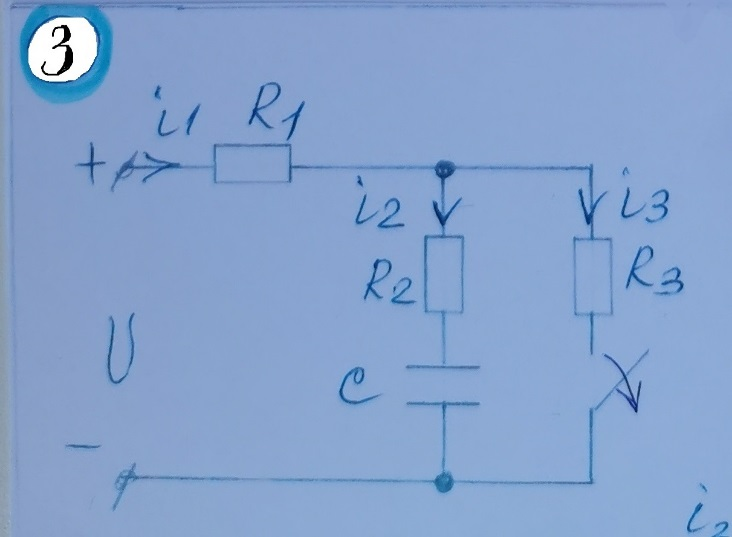 3
i1 R1
+
i2 i3
R2 R3
U
C
-
i2